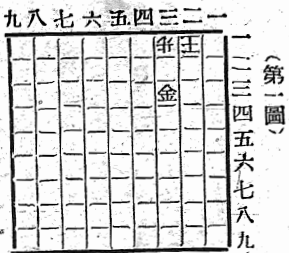 九八七六五四三二一
王
金
一二三四五六七八九
(第一圖)